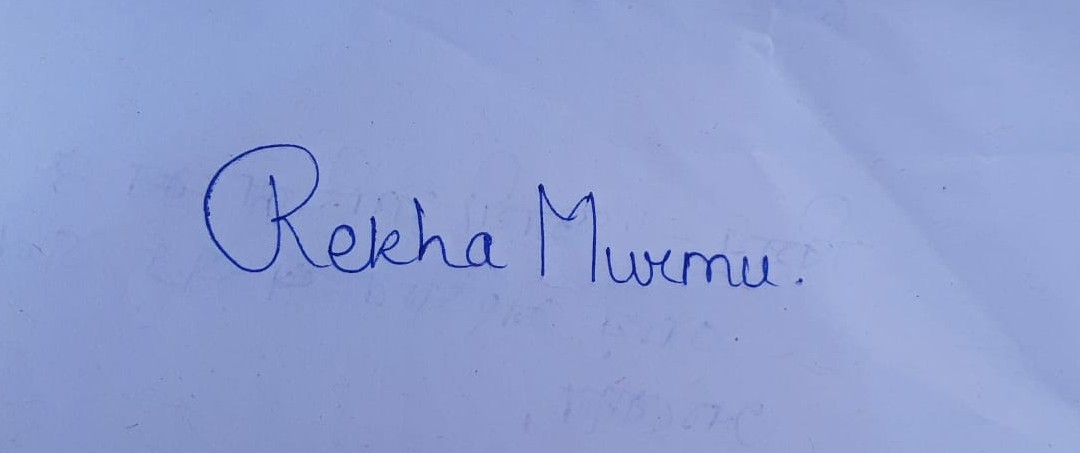 Rekha Murmu.